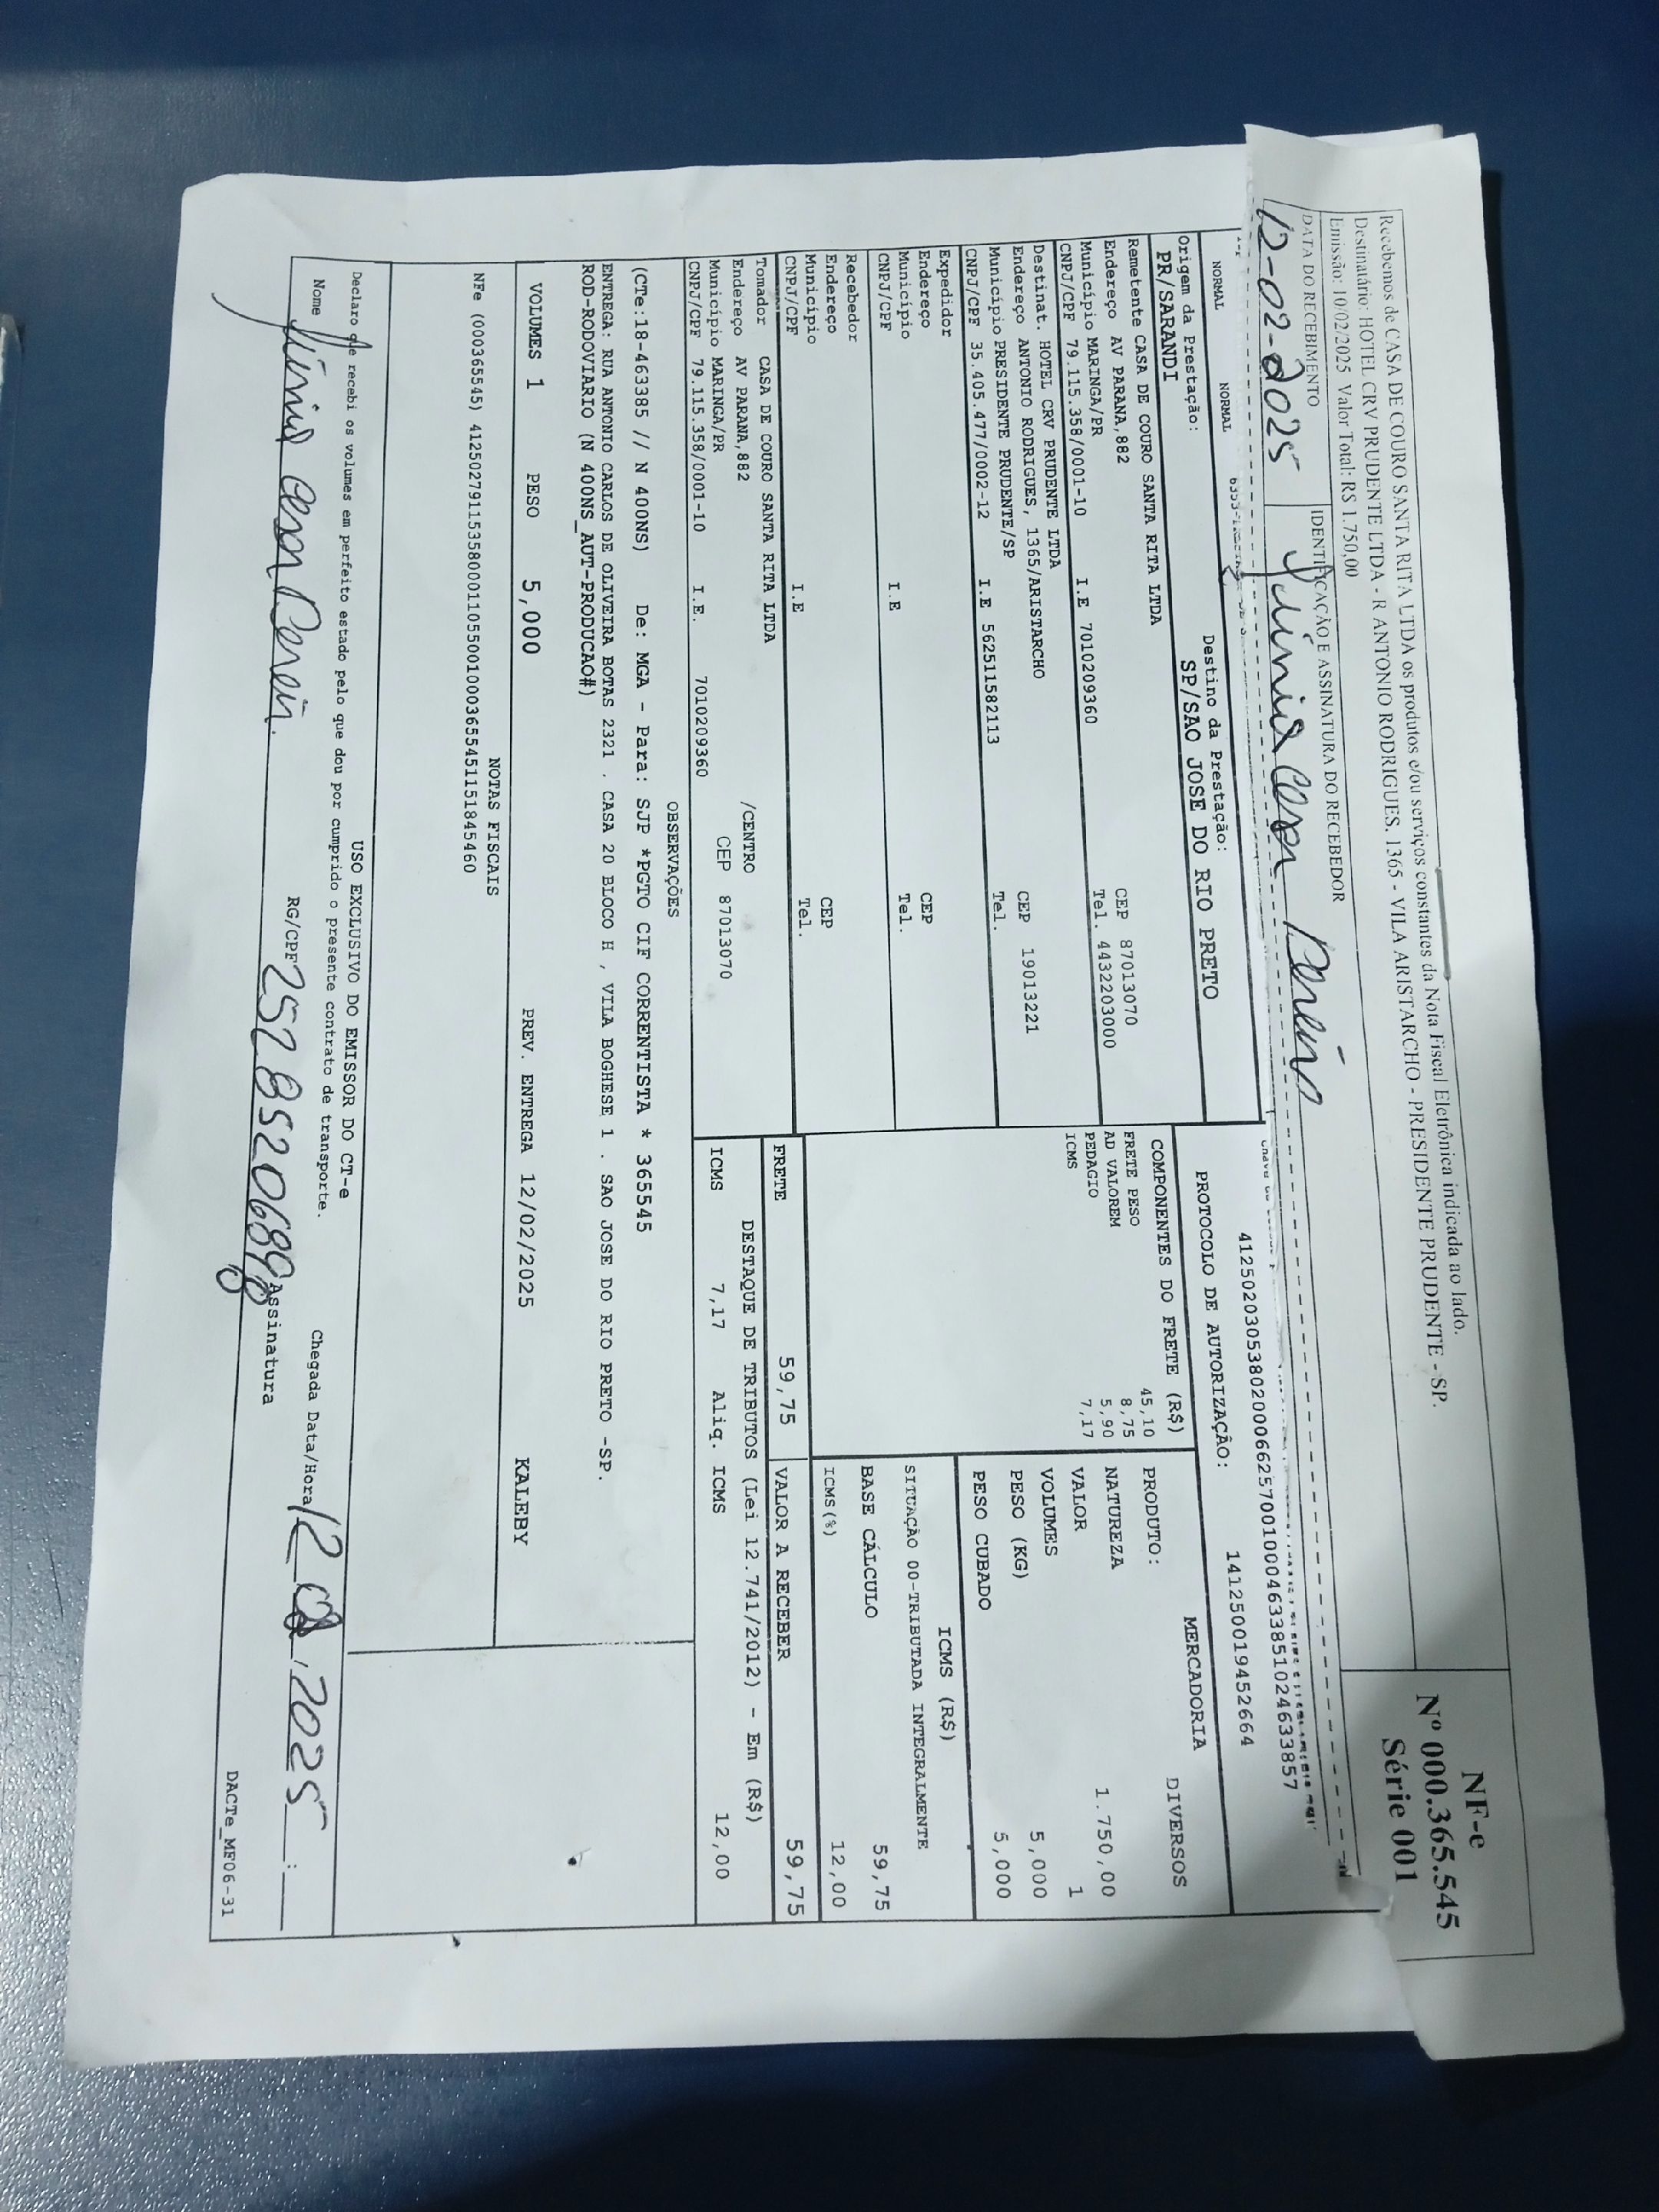 Recebemos de CASA DE COURO SANTA RITA LTDA os produtos e/ou serviços constantes da Nota Fiscal Eletrônica indicada ao lado.
Destinatário: HOTEL CRV PRUDENTE LTDA - R ANTONIO RODRIGUES, 1365 - VILA ARISTARCHO - PRESIDENTE PRUDENTE - SP.
Emissão: 10/02/2025 Valor Total: R$ 1.750,00
NF-e
Nº 000.365.545
Série 001
DATA DO RECEBIMENTO
12-02-2025
IDENTIFICAÇÃO E ASSINATURA DO RECEBEDOR
NORMAL NORMAL
41250203053802000662570010004633851024633857
PROTOCOLO DE AUTORIZAÇÃO: 141250019452664
Origem da Prestação:
PR/SARANDI
Destino da Prestação:
SP/SAO JOSE DO RIO PRETO
Remetente CASA DE COURO SANTA RITA LTDA
Endereço AV PARANA,882 CEP 87013070
Município MARINGA/PR Tel. 4432203000
CNPJ/CPF 79.115.358/0001-10 I.E 7010209360
Destinat. HOTEL CRV PRUDENTE LTDA
Endereço ANTONIO RODRIGUES, 1365/ARISTARCHO CEP 19013221
Município PRESIDENTE PRUDENTE/SP Tel.
CNPJ/CPF 35.405.477/0002-12 I.E 562511582113
Expedidor
Endereço CEP
Município Tel.
CNPJ/CPF I.E
Recebedor
Endereço CEP
Município Tel.
CNPJ/CPF I.E
Tomador CASA DE COURO SANTA RITA LTDA
Endereço AV PARANA,882 /CENTRO
Município MARINGA/PR CEP 87013070
CNPJ/CPF 79.115.358/0001-10 I.E. 7010209360
COMPONENTES DO FRETE (R$)
FRETE PESO 45,10
AD VALOREM 8,75
PEDAGIO 5,90
ICMS 7,17
MERCADORIA
PRODUTO: DIVERSOS
NATUREZA
VALOR 1.750,00
VOLUMES 1
PESO (KG) 5,000
PESO CUBADO 5,000
ICMS (R$)
SITUAÇÃO 00-TRIBUTADA INTEGRALMENTE
BASE CÁLCULO 59,75
ICMS (%) 12,00
FRETE 59,75
VALOR A RECEBER 59,75
DESTAQUE DE TRIBUTOS (Lei 12.741/2012) - Em (R$)
ICMS 7,17 Aliq. ICMS 12,00
OBSERVAÇÕES
(CTe:18-463385 // N 400NS) De: MGA - Para: SJP *PGTO CIF CORRENTISTA * 365545
ENTREGA: RUA ANTONIO CARLOS DE OLIVEIRA BOTAS 2321 . CASA 20 BLOCO H , VILA BOGHESE 1 . SAO JOSE DO RIO PRETO -SP.
ROD-RODOVIARIO (N 400NS_AUT-PRODUCAO#)
VOLUMES 1 PESO 5,000 PREV. ENTREGA 12/02/2025 KALEBY
NOTAS FISCAIS
NFe (000365545) 41250279115358000110550010003655451151845460
USO EXCLUSIVO DO EMISSOR DO CT-e
Declaro que recebi os volumes em perfeito estado pelo que dou por cumprido o presente contrato de transporte.
Nome RG/CPF Assinatura
Chegada Data/Hora 12 2025 :
DACTe_MF06-31